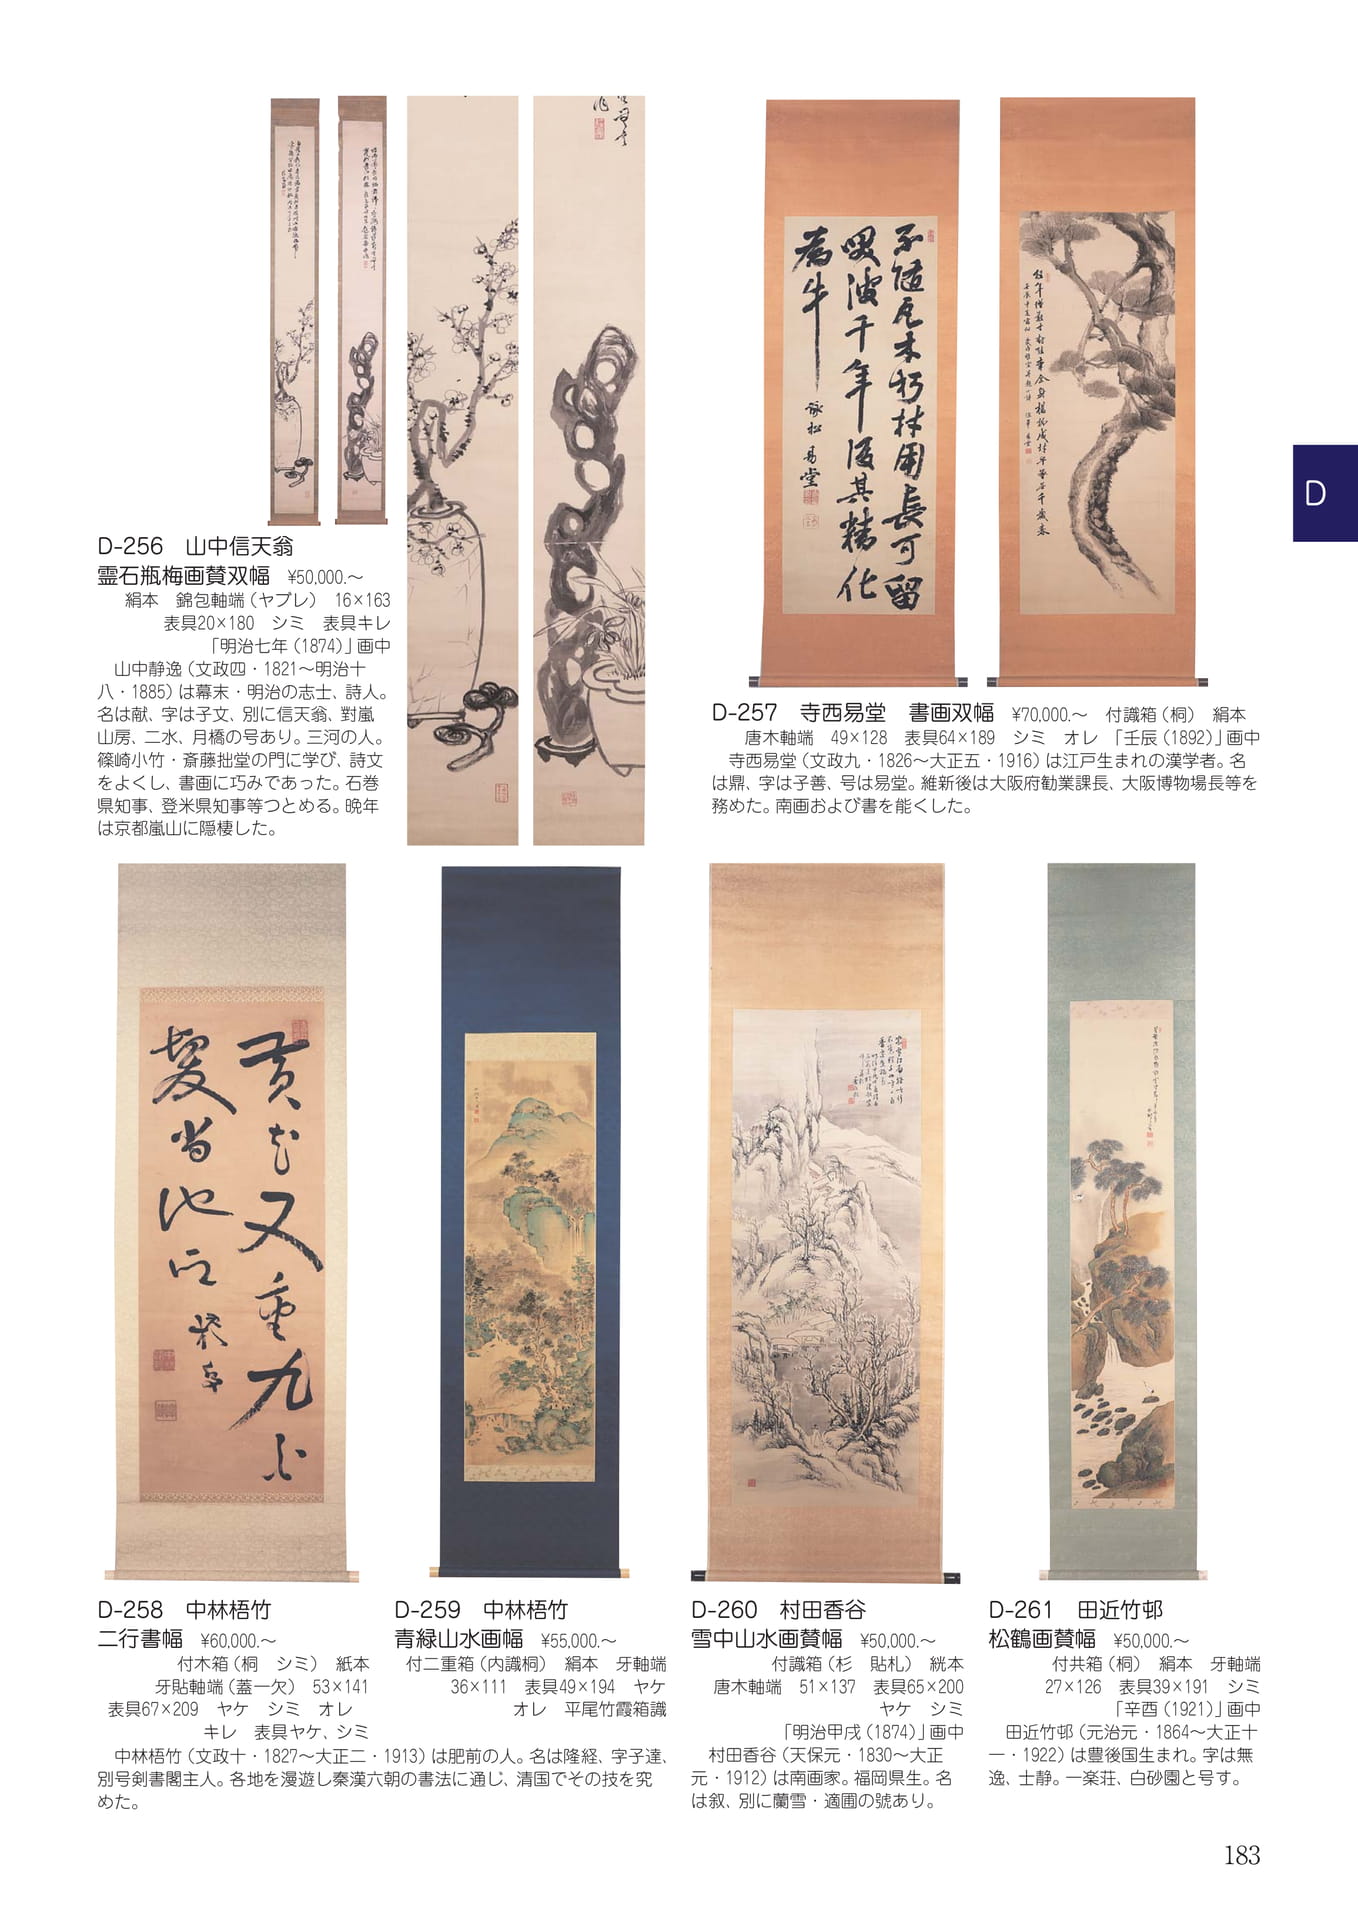 D-256　山中信天翁
霊石瓶梅画賛双幅　¥50,000.～
絹本　錦包軸端（ヤブレ）　16×163
表具20×180　シミ　表具キレ
「明治七年（1874）」画中
山中静逸（文政四・1821～明治十
八・1885）は幕末・明治の志士、詩人。
名は献、字は子文、別に信天翁、對嵐
山房、二水、月橋の号あり。三河の人。
篠崎小竹・斎藤拙堂の門に学び、詩文
をよくし、書画に巧みであった。石巻
県知事、登米県知事等つとめる。晩年
は京都嵐山に隠棲した。
不随凡木朽林用長可留
吸波千年後其精化
為牛
詠松　易堂
D
D-257　寺西易堂　書画双幅　¥70,000.～　付識箱（桐）　絹本
唐木軸端　49×128　表具64×189　シミ　オレ　「壬辰（1892）」画中
寺西易堂（文政九・1826～大正五・1916）は江戸生まれの漢学者。名
は鼎、字は子善、号は易堂。維新後は大阪府勧業課長、大阪博物場長等を
務めた。南画および書を能くした。
黄花又重九
D-258　中林梧竹
二行書幅　¥60,000.～
付木箱（桐　シミ）　紙本
牙貼軸端（蓋一欠）　53×141
表具67×209　ヤケ　シミ　オレ
キレ　表具ヤケ、シミ
中林梧竹（文政十・1827～大正二・1913）は肥前の人。名は隆経、字子達、
別号剣書閣主人。各地を漫遊し秦漢六朝の書法に通じ、清国でその技を究
めた。
D-259　中林梧竹
青緑山水画幅　¥55,000.～
付二重箱（内識桐）　絹本　牙軸端
36×111　表具49×194　ヤケ
オレ　平尾竹霞箱識
D-260　村田香谷
雪中山水画賛幅　¥50,000.～
付識箱（杉　貼札）　絖本
唐木軸端　51×137　表具65×200
ヤケ　シミ
「明治甲戌（1874）」画中
村田香谷（天保元・1830～大正
元・1912）は南画家。福岡県生。名
は叙、別に蘭雪・適圃の號あり。
D-261　田近竹邨
松鶴画賛幅　¥50,000.～
付共箱（桐）　絹本　牙軸端
27×126　表具39×191　シミ
「辛酉（1921）」画中
田近竹邨（元治元・1864～大正十
一・1922）は豊後国生まれ。字は無
逸、士静。一楽荘、白砂園と号す。
183